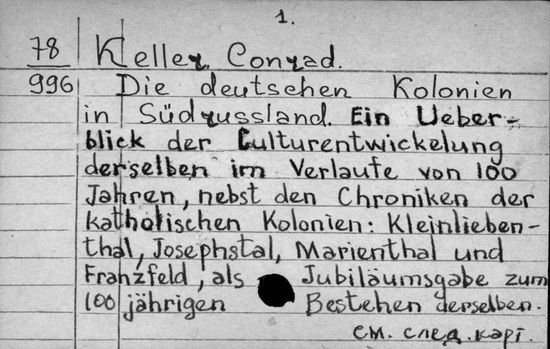 1.
78 Keller, Conrad.
996 Die deutschen Kolonien
in Südrussland. Ein Ueber-
blick der Culturentwickelung
derselben im Verlaufe von 100
Jahren, nebst den Chroniken der
katholischen Kolonien: Kleinlieben-
thal, Josephstal, Marienthal und
Franzfeld, als Jubiläumsgabe zum
100 jährigen Bestehen derselben.
см. след. карт.